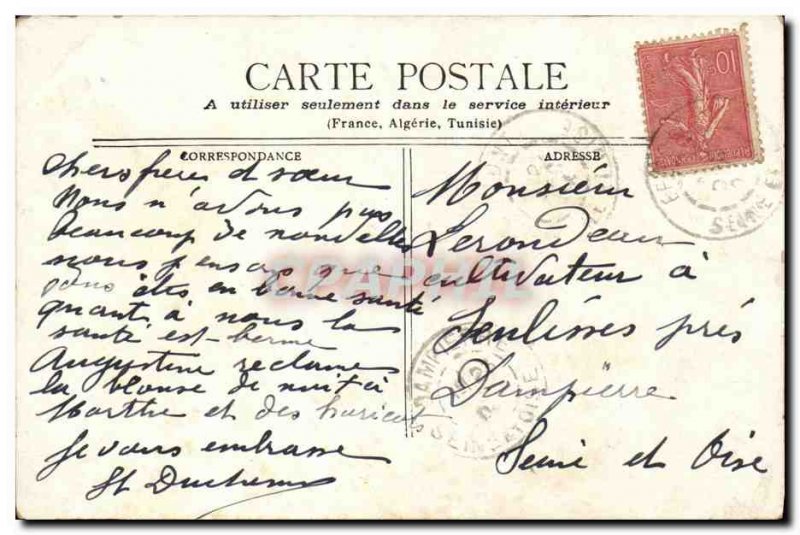 CARTE POSTALE
A utiliser seulement dans le service intérieur
(France, Algérie, Tunisie)
CORRESPONDANCE
chers frere et sœur
Nous n'avons pas
beaucoup de nouvelle
nous pensons que
vous êtes en bonne santé
quant à nous la
santé est bonne
Augustine reclame
la blouse de nuit à
Marthe et des haricots
Je vous embrasse
ADRESSE
Monsieur
Lerondeau
cultivateur à
Senlisses près
Dampierre
Seine et Oise
10
DAMPIERRE
SEINE ET OISE